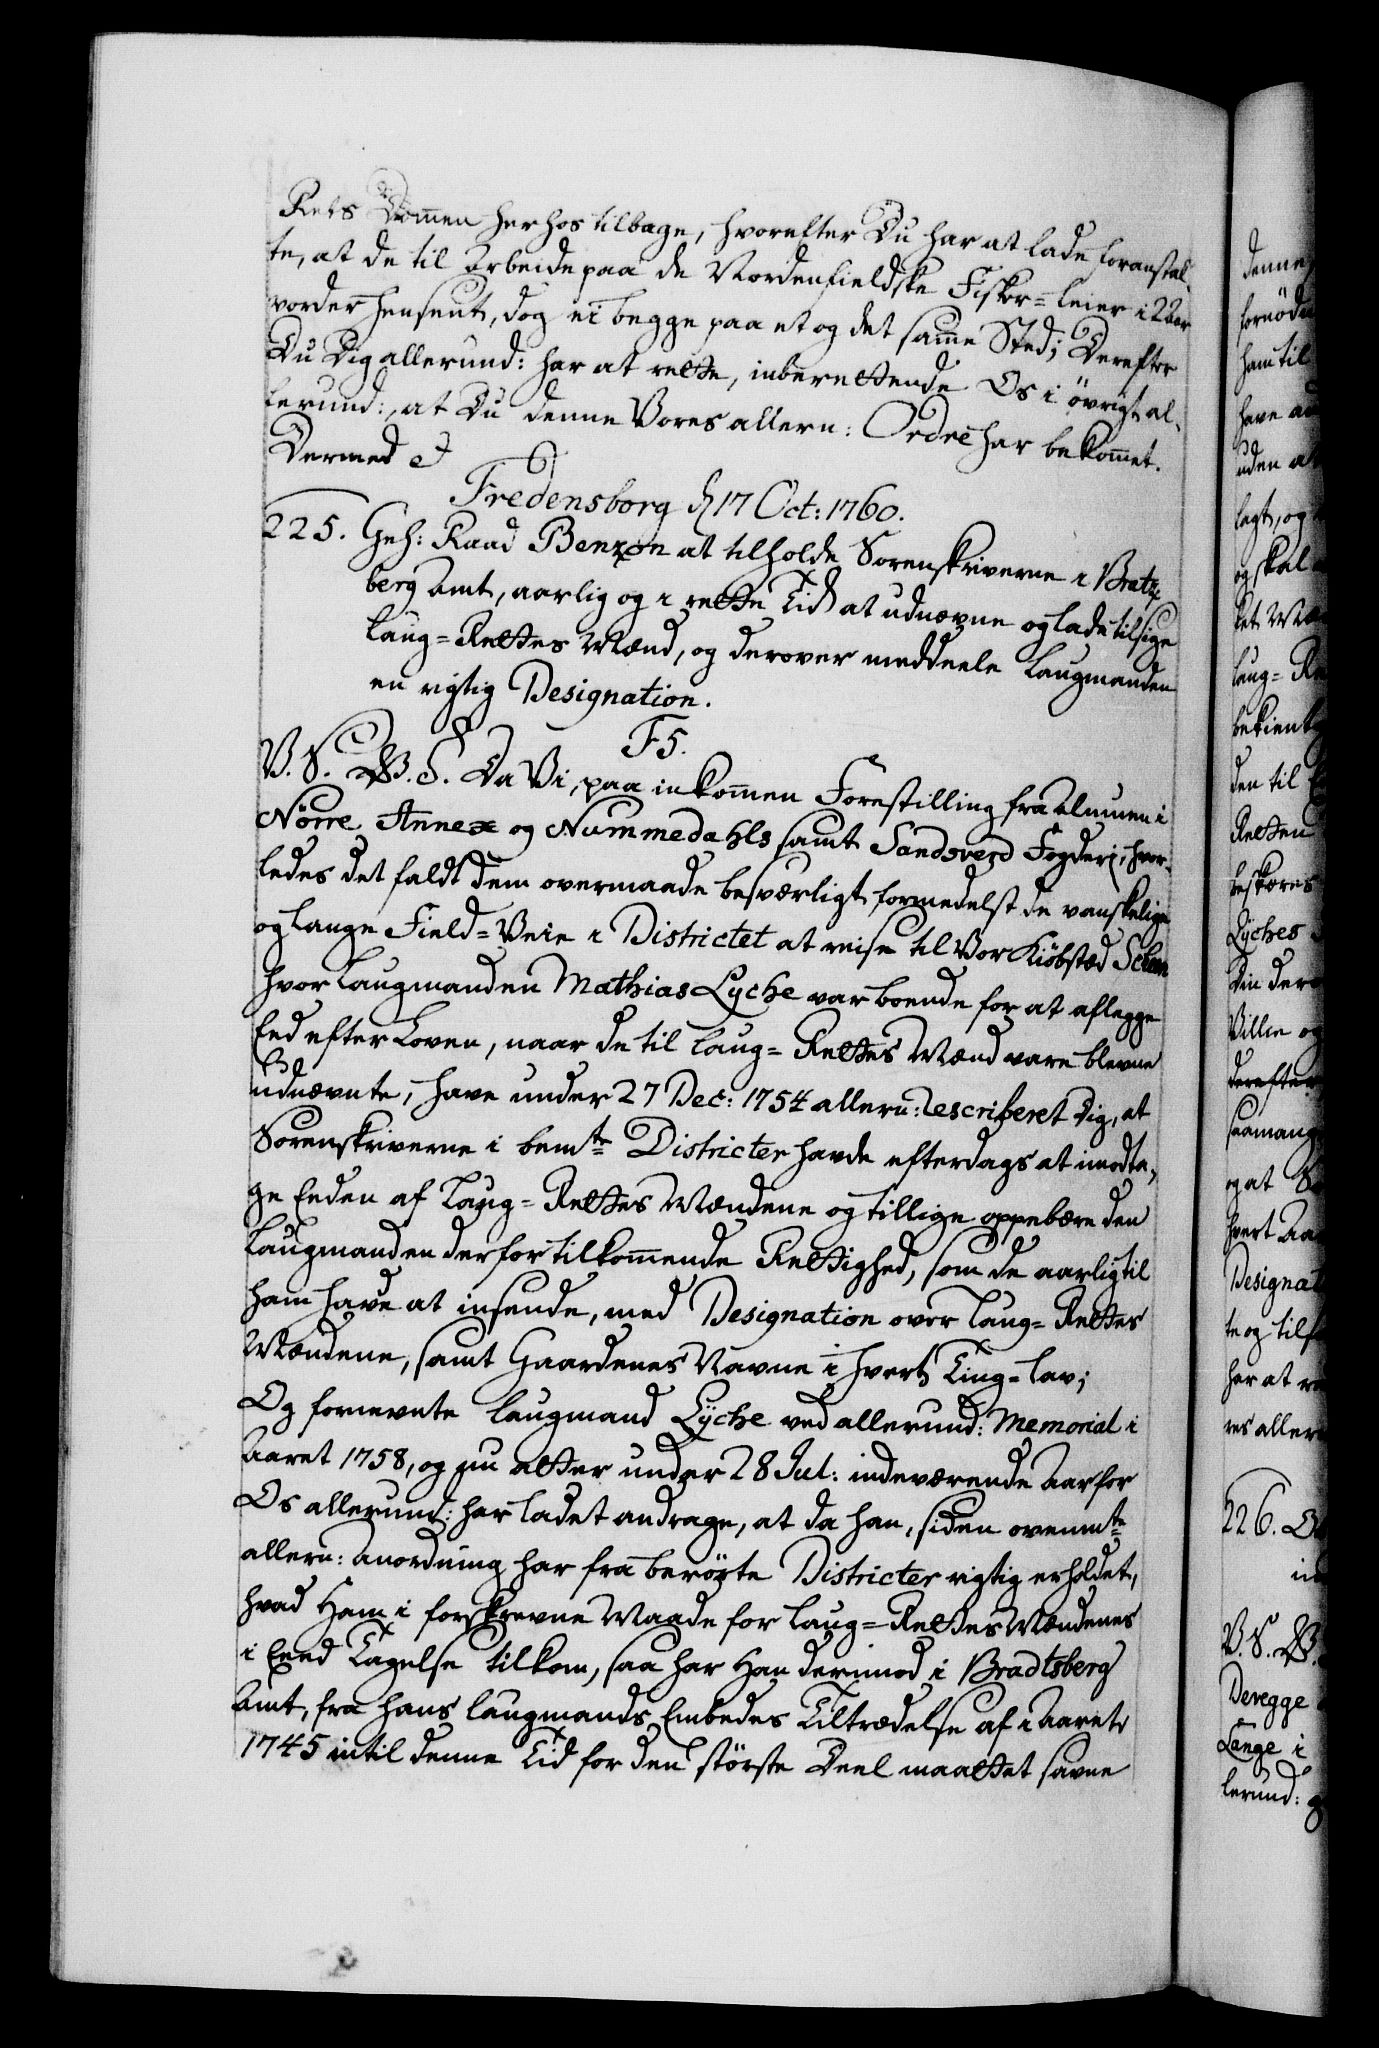 Rets Dommen herhos tilbage, hvorefter Du har at lade foranstal-
te, at de til Arbeide paa de Nordenfieldske Fisker=leier i 2 Aar
vorder hensent, dog ei begge paa et og det samme Sted; Derefter
Du Dig allerund: har at rette, inberettende Os i övrigt al-
lerund:, at Du denne Vores allern: Ordre har bekommet.
Dermed
Fredensborg d 17 Oct: 1760.
225. Geh: Raad Benzon at tilholde Sorenskriverne i Bratz
berg Amt, aarlig og i rette Tid at udnævne og lade tilsige
Laug=Rettes Mænd, og derover meddeele Laugmanden
en rigtig Designation.
F5.
V. S. W. S. Da Vi, paa inkommen Forestilling fra Almuen i
Nörre Annex og Nummedahls samt Sandsverd Fogderi, hvor-
ledes det faldt dem overmaade besværligt formedelst de vanskelige
og lange Field=Veie i Districtet at reise til Vor Kiöbstæd Scheen
hvor Laugmanden Mathias Lyche var boende for at aflegge
Eed efter Loven, naar de til Laug=Rettes Mænd vare blevne
udnævnte, have under 27 Dec: 1754 allern: rescriberet Dig, at
Sorenskriverne i bemte Districter havde efterdags at imodta-
ge Eeden af Laug=Rettes Mændene og tillige oppebære den
Laugmanden derfor tilkommende Rettighed, som de aarlig til
ham have at insende, med Designation over Laug=Rettes
Mændene, samt Gaardenes Navne i hvert Ting=lav;
Og fornevnte Laugmand Lyche ved allerund: Memorial i
Aaret 1758, og nu atter under 28 Jul: indeværende Aar for
Os allerund: har ladet andrage, at da han, siden ovenmte
allern: Anordning har fra berörte Districter rigtig erholdet,
hvad Ham i forskrevne Maade for Laug=Rettes Mændenes
i Eeed Tagelse tilkom, saa har Han derimod i Bradtsberg
Amt, fra hans Laugmands Embedes Tiltrædelse af i Aaret
1745 intil denne Tid for den störste Deel maattet savne
denne
ham til
uden
lagt, og
og skal
Laug=
den til
Retten
Lyches
Din
Ville og
derefter
og at
hvert Aa
Designat
te og
har at
res aller
226.
V. S. W.
Devegge
Lange i
lerund: